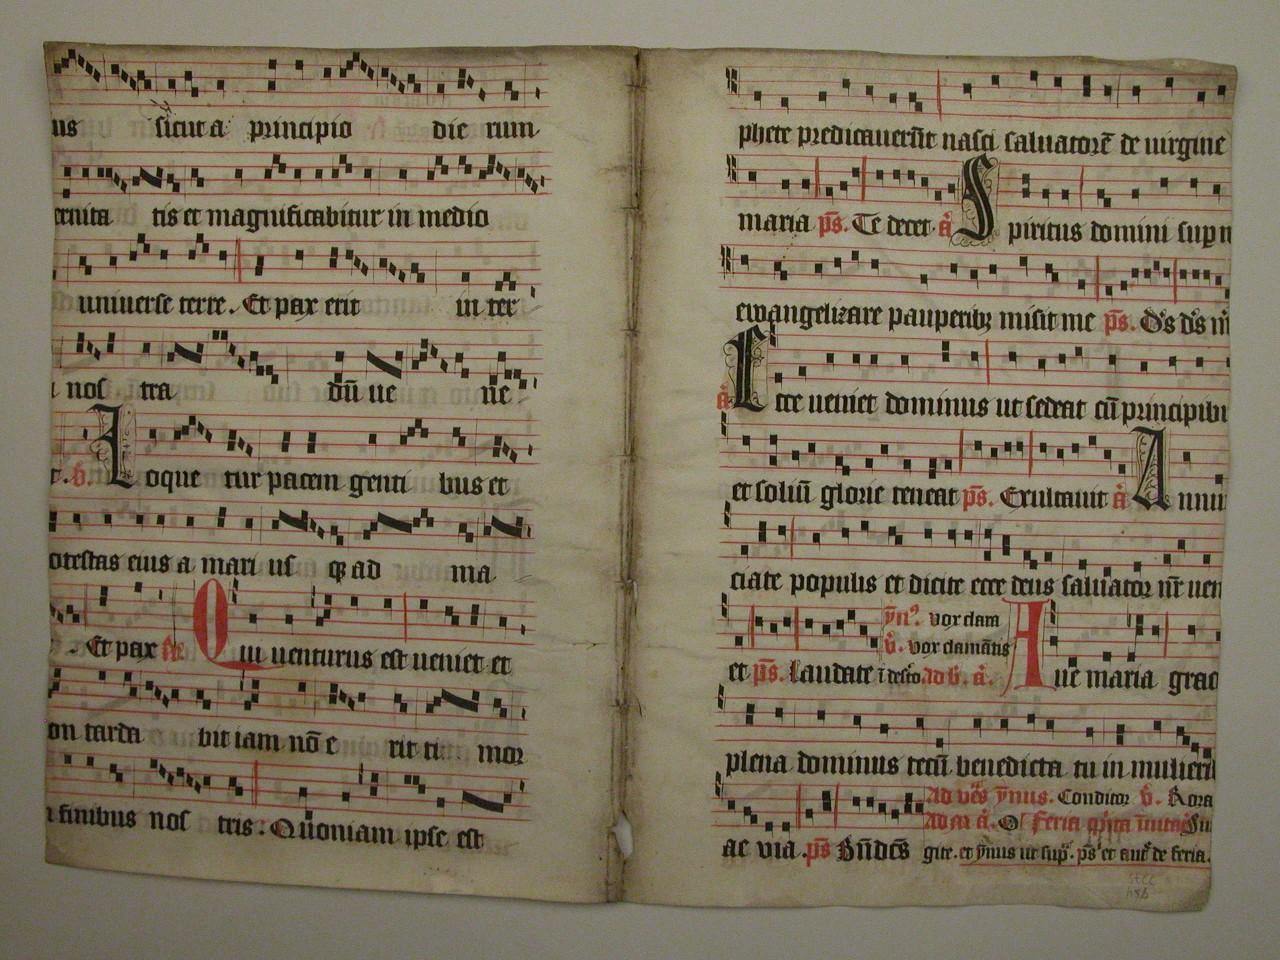 us sicut a principio die rum
ernita tis et magnificabitur in medio
universe terre. Et pax erit in ter
nos tra dū ve ne
v. Loque tur pacem genti bus et
otestas eius a mari us qȝ ad ma
Et pax Qui venturus est veniet et
on tarda bit iam nō e rit ti mor
n finibus nos tris. Quoniam ipse est
phete predicaverūt nasci salvatorē de virgine
maria ps. Te decet. a Spiritus domini sup
ewangelizare pauperibȝ misit me ps. Ds ds
a Ecce veniet dominus ut sedeat cū principibu
et soliū glorie teneat ps. Exultavit a Annu
ciate populis et dicite ecce deus salvator nr ven
yn9. vox clam
v. vox clamātis
et ps. Laudate ad b. a. Ave maria grac
plena dominus tecū benedicta tu in mulieri
Ad ves ynus. Conditor v. Rora
ac via. ps Bndcs
gite. et ynus ut sup. ps et ant de feria.